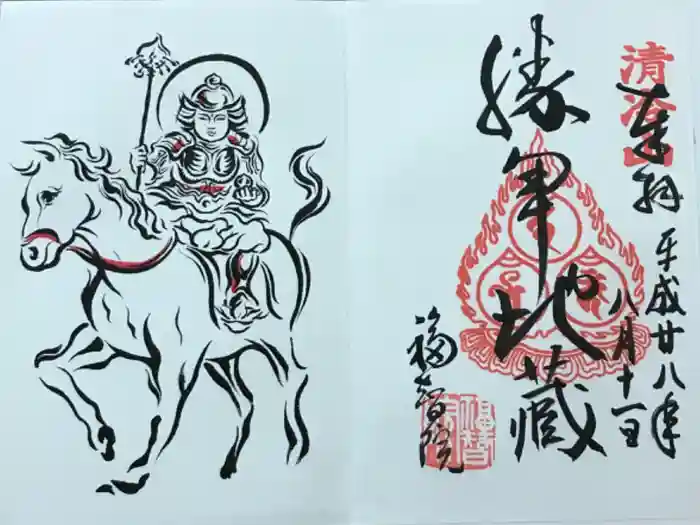 清涼山
奉拝
平成廿八年
八月十一日
勝軍地蔵
福智院
福智院